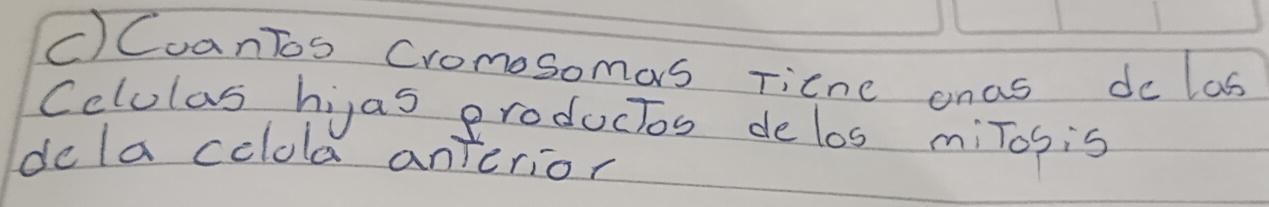 c) Cuantos Cromosomas Tiene unas de las
Celulas hijas productos de los mitosis
de la celula anterior